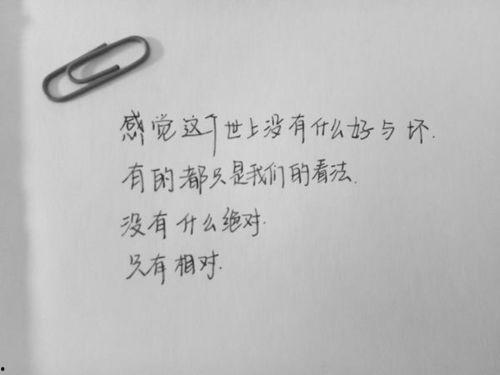 感觉这个世上没有什么好与坏.
有的都只是我们的看法.
没有什么绝对.
只有相对.